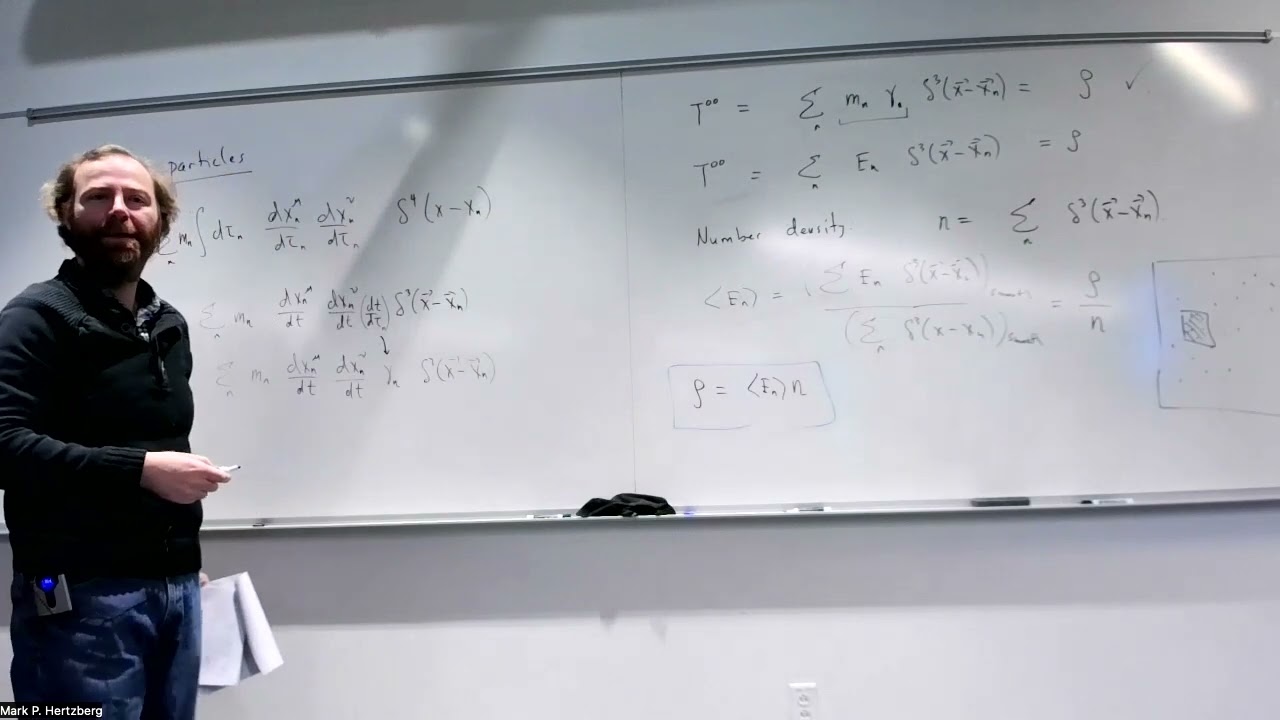 particles
Σ_n m_n ∫ dτ_n dx_n^μ/dτ_n dx_n^ν/dτ_n δ⁴(x-x_n)
Σ_n m_n dx_n^μ/dt dx_n^ν/dt (dt/dτ_n) δ³(x⃗-x⃗_n)
Σ_n m_n dx_n^μ/dt dx_n^ν/dt γ_n δ³(x⃗-x⃗_n)
T⁰⁰ = Σ_n m_n γ_n δ³(x⃗-x⃗_n) = ρ ✓
T⁰⁰ = Σ_n E_n δ³(x⃗-x⃗_n) = ρ
Number density: n = Σ_n δ³(x⃗-x⃗_n)
⟨E_n⟩ = (Σ_n E_n δ³(x⃗-x⃗_n))_smooth / (Σ_n δ³(x-x_n))_smooth = ρ/n
ρ = ⟨E_n⟩ n
Mark P. Hertzberg